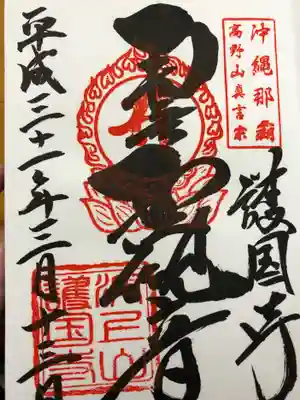 沖縄那覇
高野山真言宗
護国寺
聖観音
平成三十一年三月十三日
波上山
護国寺